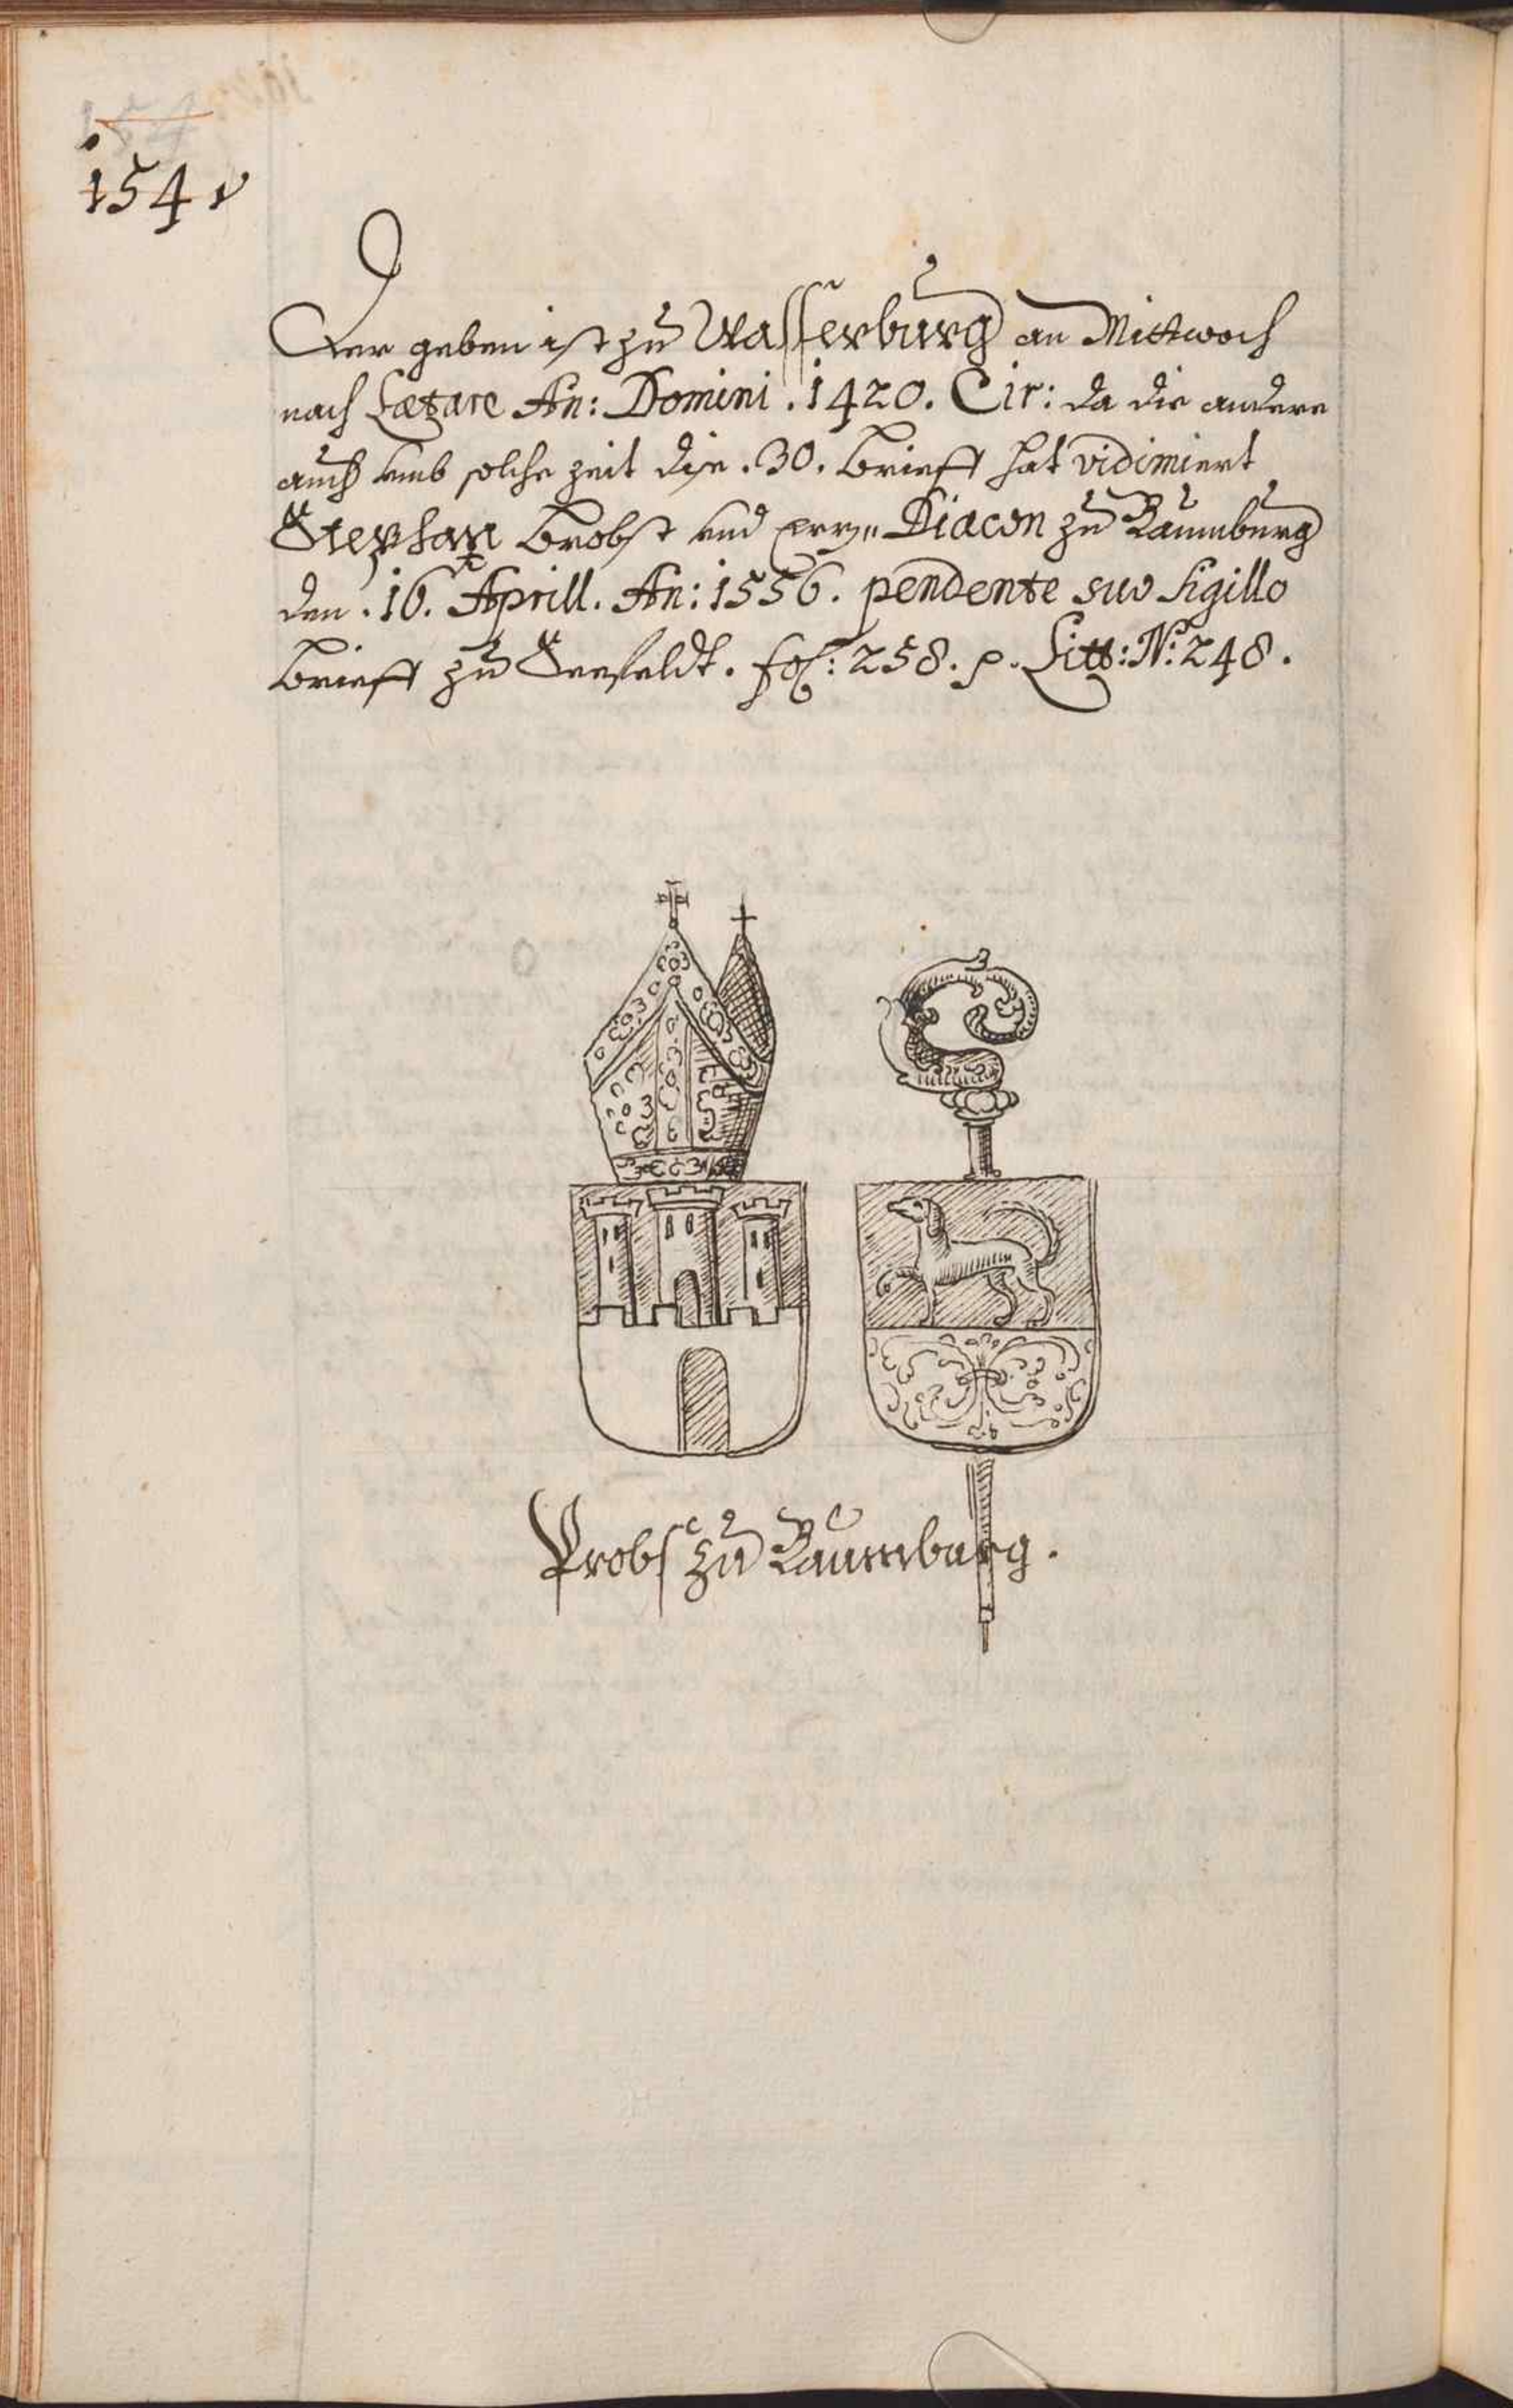 154v
Der geben ist zu Wasserburg an Mittwoch
nach Lætare An: Domini . 1420. Cir: da die andere
auch umb solche zeit dise . 30. brieff hat vidimiert
Stephan brobst und Diacon zu Baumburg
den . 16. Aprill. An: 1556. pendente suo sigillo
brieff zu Seefeldt. fol: 258. p. Litt: N: 248.
Probst zu Baumburg.